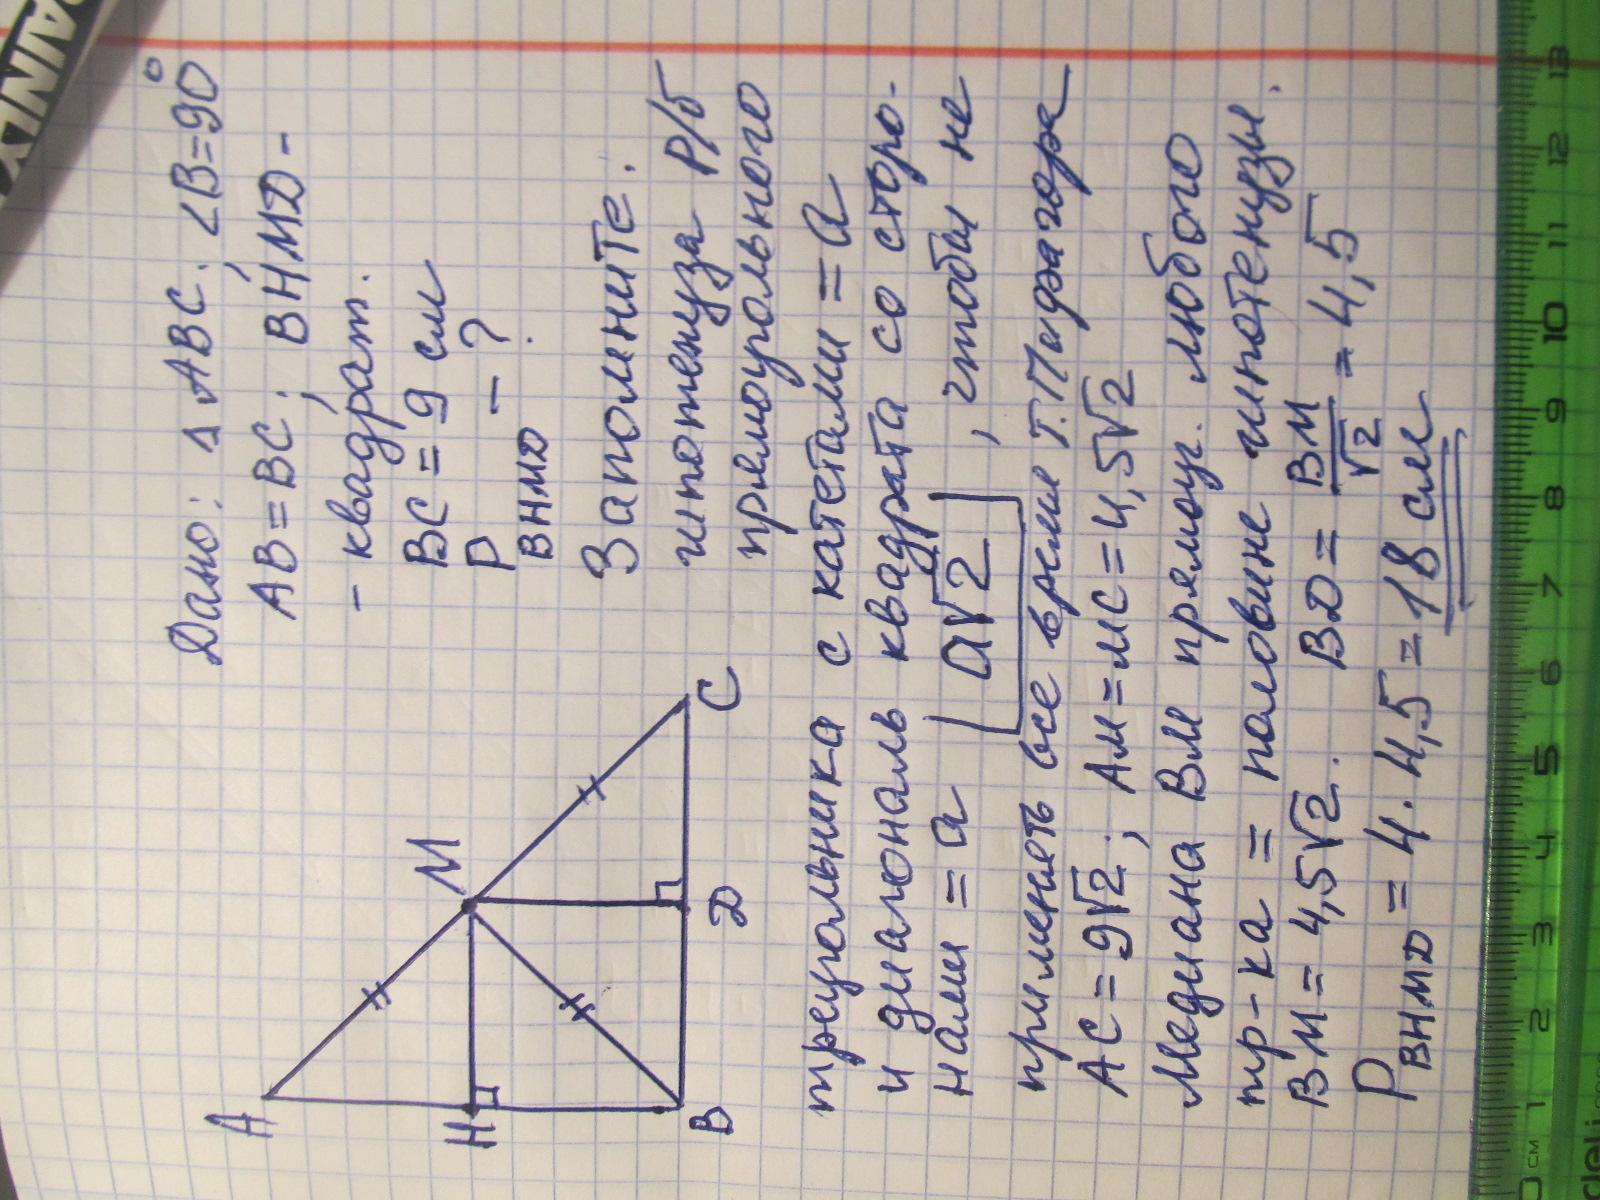 Дано: Δ ABC. ∠B=90°
AB=BC, BHMД -
- квадрат.
BC=9 см
P BHMД - ?
A
H
B
M
Д
C
Запомните.
гипотенуза Р/б
прямоугольного
треугольника с катетами = a
и диагональ квадрата со сторо-
нами = a a√2, чтобы не
применять все время т. Пифагора
AC = 9√2; AM=MC=4,5√2
Медиана BM прямоуг. любого
тр-ка = половине гипотенузы.
BM = 4,5√2. BД = BM/√2 = 4,5
P BHMД = 4·4,5 = 18 см
AINLY
0 см 1 2 3 4 5 6 7 8 9 10 11 12 13
deli